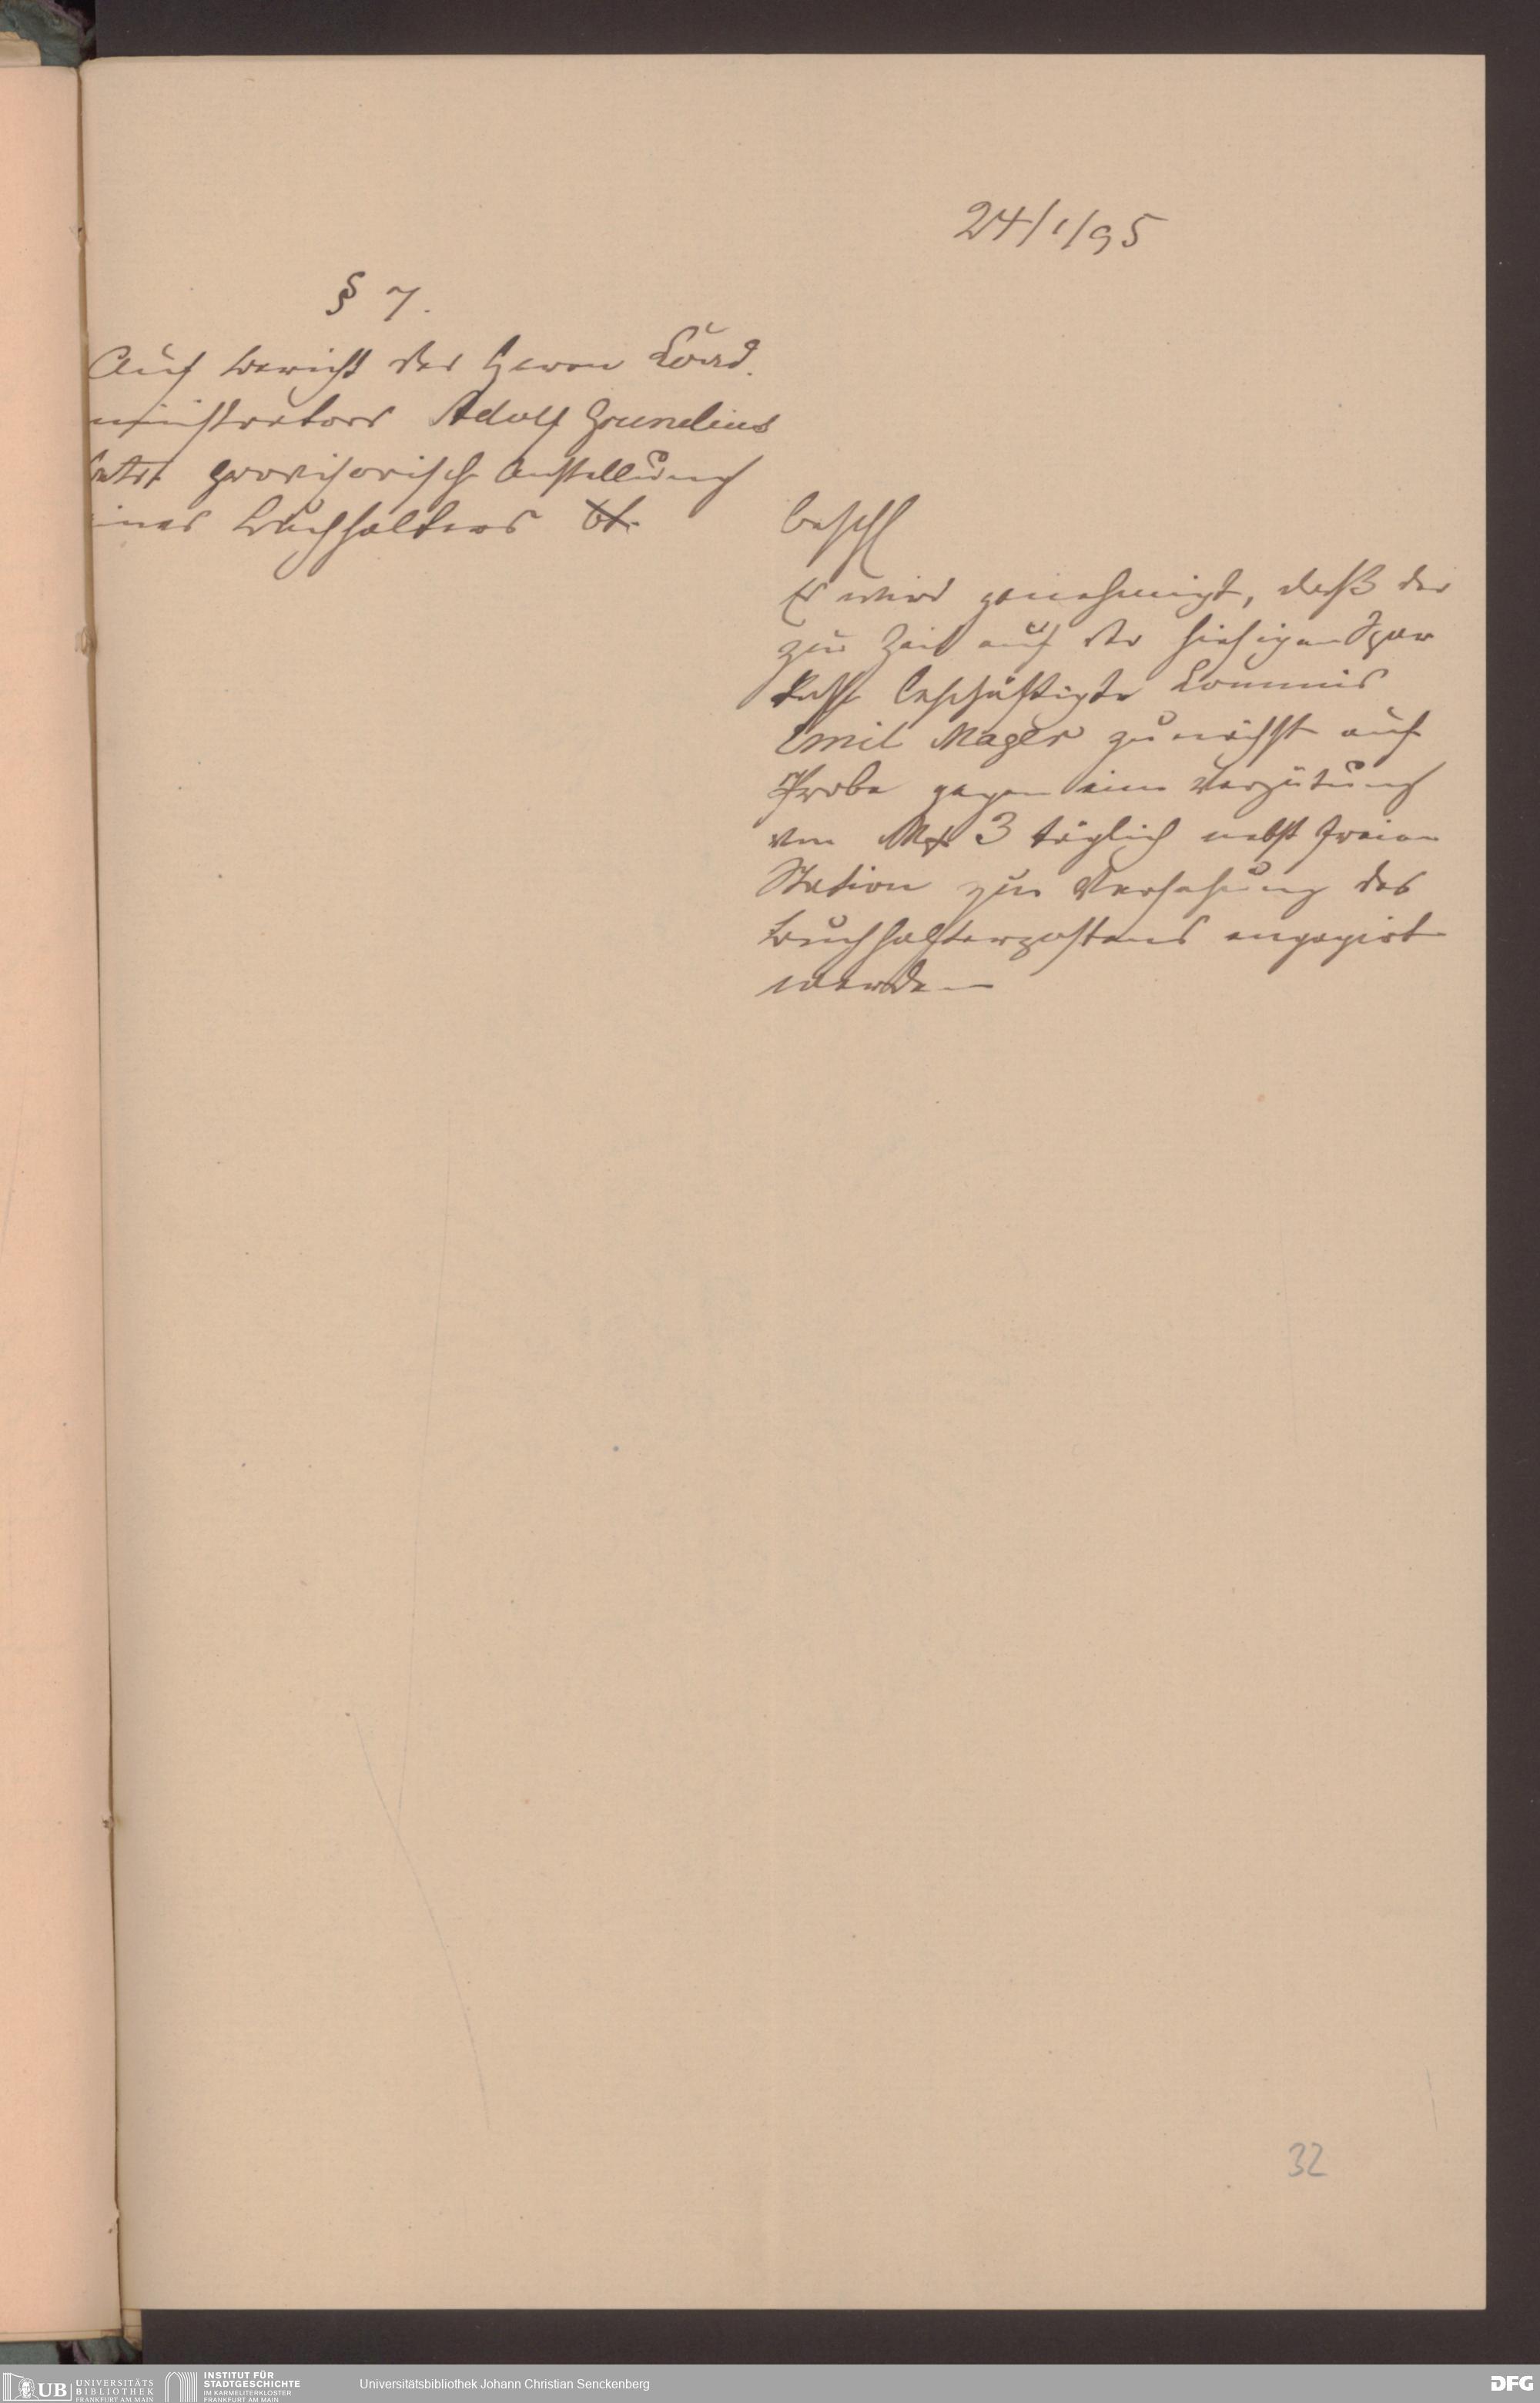 24/1/95
§ 7.
Auf Bericht des Herrn Coad.
ministrators Adolf Grunelius
betrf provisorische Anstellung
eines Buchhalters
beschl
Es wird genehmigt, daß der
zur Zeit auf der hiesigen Spar
kasse beschäftigte Commis
Emil Mager zunächst auf
Probe gegen eine Vergütung
von Mk 3 täglich nebst freier
Station zur Versehung des
Buchhalterpostens engagirt
werde
32
UB
UNIVERSITÄTS
BIBLIOTHEK
FRANKFURT AM MAIN
INSTITUT FÜR
STADTGESCHICHTE
IM KARMELITERKLOSTER
FRANKFURT AM MAIN
Universitätsbibliothek Johann Christian Senckenberg
DFG